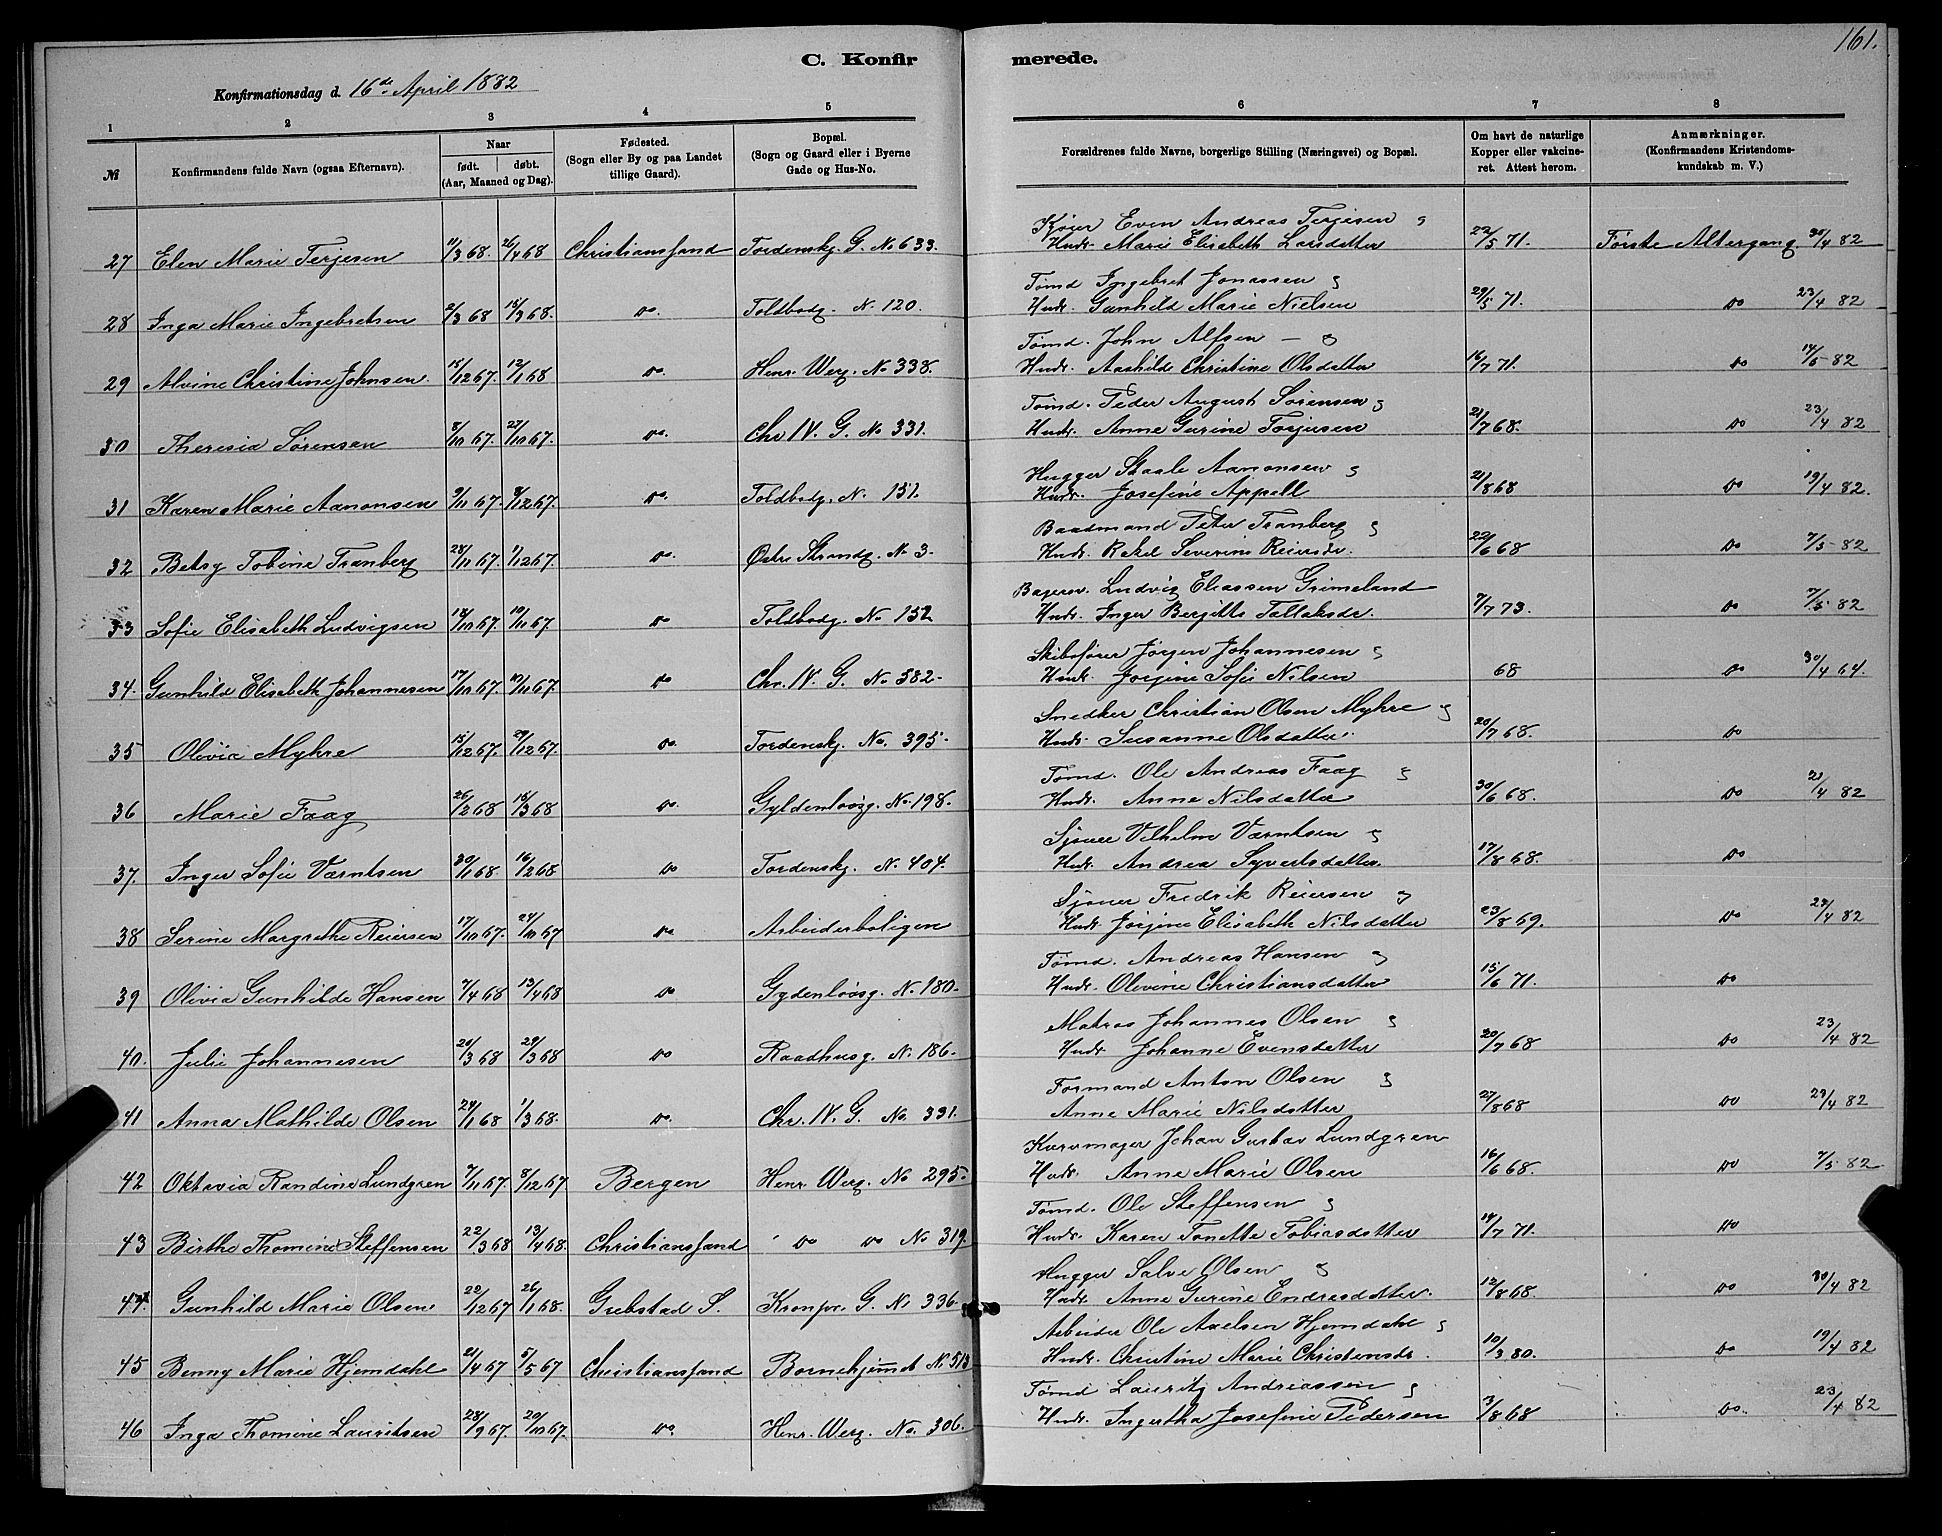 161.
C. Konfirmerede.
Konfirmationsdag d. 16de April 1882
1 2 3 4 5 6 7 8
№ Konfirmandens fulde Navn (ogsaa Efternavn). Naar født. døbt. (Aar, Maaned og Dag). Fødested. (Sogn eller By og paa Landet tillige Gaard). Bopæl. (Sogn og Gaard eller i Byerne Gade og Hus-No. Forældrenes fulde Navne, borgerlige Stilling (Næringsvei) og Bopæl. Om havt de naturlige Kopper eller vakcineret. Attest herom. Anmærkninger. (Konfirmandens Kristendomskundskab m. V.)
Kjører Even Andreas Terjesen og
27 Elen Marie Terjesen 11/3 68. 26/4 68 Christianssand Tordenskj. G. No 633. Hudr. Marie Elisabeth Larsdatter 22/5 71. Første Altergang 30/4 82
Tømd Ingebret Jonassen og
28 Inga Marie Ingebretsen 2/3 68 15/3 68. do. Toldbodg. N. 120. Hudr. Gunhild Marie Nielsen 29/5 71. do 23/4 82
Tømd. John Alfsen - og
29 Alvine Christine Johnsen. 15/12 67. 12/1 68 do. Henr. Werg. No 338. Hudr. Aashilde Christine Olsdatter 16/7 71. do 14/5 82
Tømd. Peder August Sørensen og
30 Theresia Sørensen 8/10 67. 27/10 67. do. Chr. IV. G. No 331. Hudr. Anne Gurine Torjusen 21/7 68. do 23/4 82
Hugger Staale Aanonsen og
31 Karen Marie Aanonsen 9/11 67. 8/12 67. do. Toldbodg. N. 151. Hudr. Josefine Appell 21/8 68 do 19/4 82.
Baadmand Peter Tranberg og
32 Betsy Tobine Tranberg 28/11 67. 1/12 67. do. Østre Strandg. No 3. Hudr. Rakel Severine Reiersdr. 22/6 68 do 7/5 82
Bagersv. Ludvig Eliassen Grimeland
33 Sofie Elisabeth Ludvigsen 18/10 67. 10/11 67. do Toldbodg. No 152 Hudr. Inger Bergitte Tallaksdr. 7/7 73. do 7/5 82
Skibsfører Jørgen Johannesen og
34. Gunhild Elisabeth Johannesen 17/10 67. 10/11 67. do Chr. IV. G. No 382. Hudr. Jorgine Sofie Nilsen 68 do 30/4 64.
Snedker Christian Olsen Myhre og
35 Olivia Myhre 15/12 67. 29/12 67. do Tordenskj. No. 395. Hudr. Susanne Olsdatter. 20/7 68. do
Tømd. Ole Andreas Faag og
36 Marie Faag 26/2 68 15/3 68 do. Gyldenløvsg. No. 198. Hudr. Anne Nilsdatter 30/6 68. do 21/4 82
Sjømr Vilhelm Værntsen og
37. Inger Sofie Værntsen 30/1 68 16/2 68 do Tordenskj. N. 404. Hudr. Andrea Syvertsdatter 17/8 68. do
Sjømr Fredrik Reiersen og
38 Serine Margrethe Reiersen 17/10 67. 27/10 67 do Arbeiderboligen Hudr. Jørgine Elisabeth Nilsdatter 23/8 69. do 22/4 82
Tømd. Andreas Hansen og
39 Olivia Gunhilde Hansen 7/4 68 13/4 68 do Gydenløvsg. N. 180. Hudr. Olivine Christiansdatter 15/6 71. do
Matros Johannes Olsen og
40. Julie Johannesen 20/3 68 29/3 68 do Raadhusg. N. 186. Hudr. Johanne Evensdatter 20/7 68 do 23/4 82
Formand Anton Olsen og
41 Anna Mathilde Olsen 24/1 68 1/3 68. do. Chr. IV. G. No. 331. Anne Marie Nilsdatter 27/8 68 do 23/4 82
Kurvmager Johan Gustav Lundgren
42 Oktavia Randine Lundgren 7/11 67. 8/12 67 Bergen Henr. Werg. No 295. Hudr. Anne Marie Olsen 16/6 68. do 7/5 82
Tømd. Ole Steffensen og
43 Birthe Thomine Steffensen 22/3 68 13/4 68. Christianssand do do No 319. Hudr. Karen Tonette Tobiasdatter 14/7 71. do
Hugger Salve Olsen og
44. Gunhild Marie Olsen 22/12 67 26/1 68. Gubstad S. Kronpr. G. No 336. Hudr. Anne Gurine Endresdatter. 12/8 68. do 30/4 82
Arbeider Ole Axelsen Hjemdahl og
45 Benny Marie Hjemdahl 21/4 67 5/5 67 Christianssand Børnehjemmet N. 513 Hudr. Christine Marie Christensdr. 10/3 80. do 19/4 82
Tømd Lauritz Andreassen og
46 Inga Thomine Lauritsen 28/9 67. 20/10 67. do. Henr. Werg. No. 306. Hudr. Ingertha Josefine Pedersen 3/8 68 do. 23/4 82